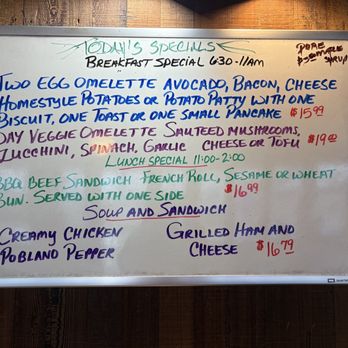 TODAY'S SPECIALS
BREAKFAST SPECIAL 630-11AM
PURE
SYRUP
TWO EGG OMELETTE AVOCADO, BACON, CHEESE
HOMESTYLE POTATOES OR POTATO PATTY WITH ONE
BISCUIT, ONE TOAST OR ONE SMALL PANCAKE $15.99
DAY VEGGIE OMELETTE SAUTEED MUSHROOMS,
ZUCCHINI, SPINACH, GARLIC CHEESE OR TOFU
LUNCH SPECIAL 11:00-2:00
BBQ BEEF SANDWICH FRENCH ROLL, SESAME OR WHEAT
BUN. SERVED WITH ONE SIDE $16.99
SOUP AND SANDWICH
CREAMY CHICKEN
POBLANO PEPPER
GRILLED HAM AND
CHEESE $16.79